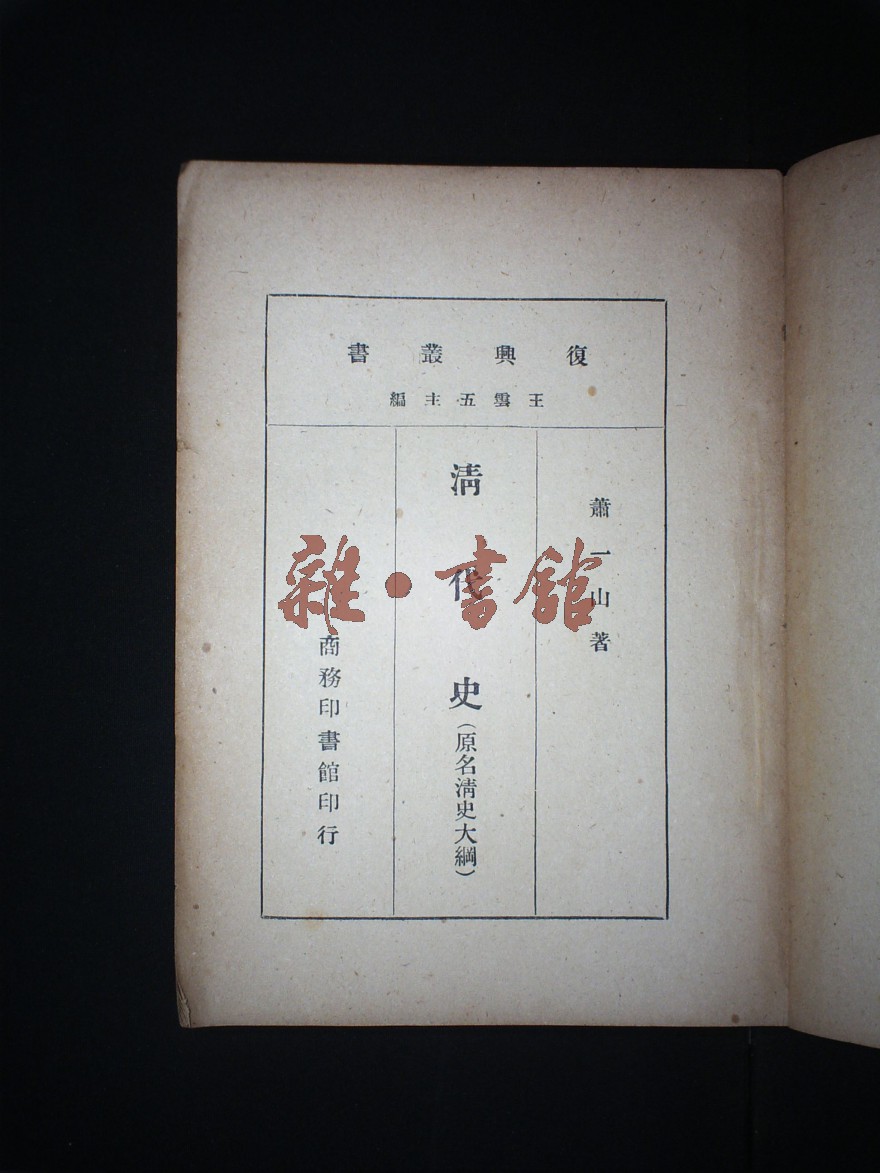 復興叢書
王雲五主編
蕭一山著
清代史
（原名清史大綱）
商務印書館印行
雜·書館